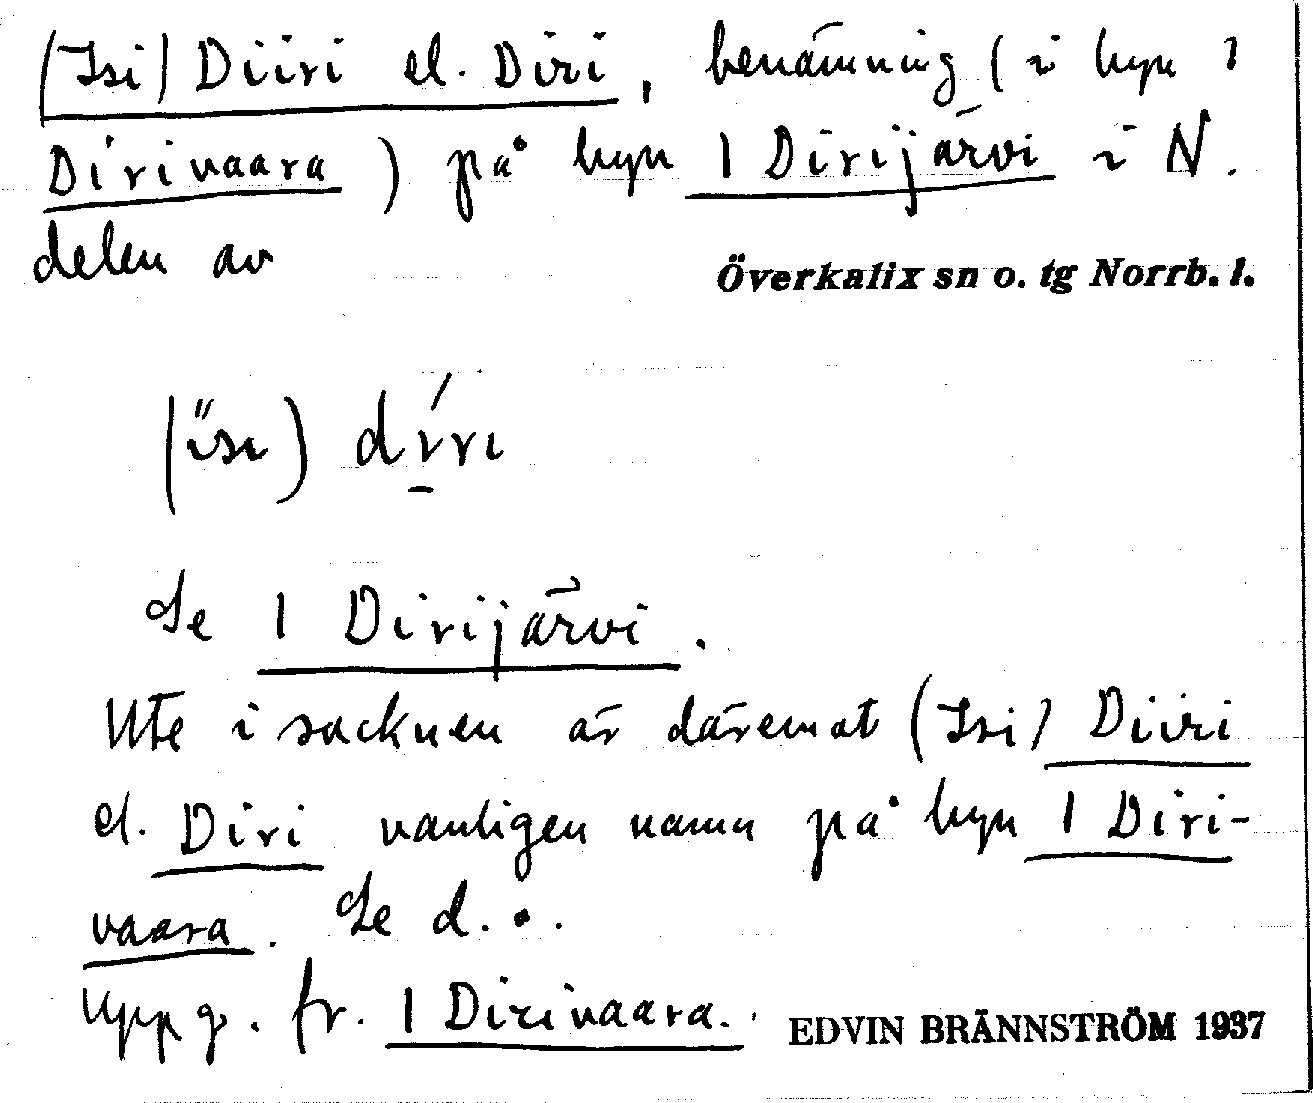 (Isi) Diiri el. Diri, benämning (i byn 1
Dirivaara) på byn 1 Dirijärvi i N.
delen av
Överkalix sn o. tg Norrb. l.
(isi) diri
Se 1 Dirijärvi.
Ute i socknen är däremot (Isi) Diiri
el. Diri vanligen namn på byn 1 Diri-
vaara. Se d. o.
Uppg. fr. 1 Dirivaara.
EDVIN BRÄNNSTRÖM 1937